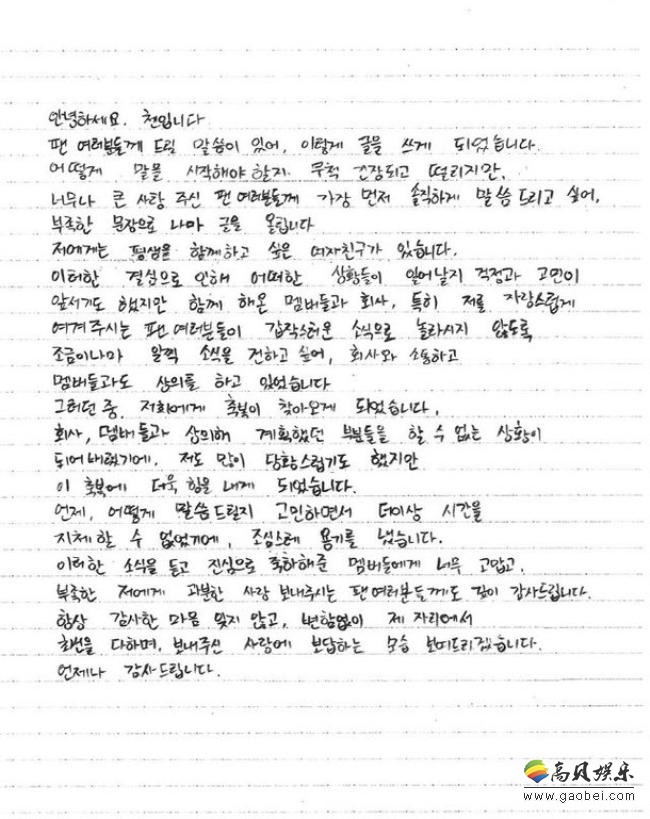 안녕하세요. 첸입니다
팬 여러분들께 드릴 말씀이 있어, 이렇게 글을 쓰게 되었습니다.
어떻게 말을 시작해야 할지 무척 긴장되고 떨리지만,
너무나 큰 사랑 주신 팬 여러분들께 가장 먼저 솔직하게 말씀드리고 싶어,
부족한 문장으로 나마 글을 올립니다
저에게는 평생을 함께하고 싶은 여자친구가 있습니다.
이러한 결심으로 인해 어떠한 상황들이 일어날지 걱정과 고민이
앞서기도 했지만 함께 해온 멤버들과 회사, 특히 저를 자랑스럽게
여겨주시는 팬 여러분들이 갑작스러운 소식으로 놀라시지 않도록
조금이나마 일찍 소식을 전하고 싶어, 회사와 소통하고
멤버들과도 상의를 하고 있었습니다
그러던 중, 저희에게 축복이 찾아오게 되었습니다.
회사, 멤버들과 상의해 계획했던 부분들을 할 수 없는 상황이
되어버렸기에, 저도 많이 당황스럽기도 했지만
이 축복에 더욱 힘을 내게 되었습니다.
언제, 어떻게 말씀드릴지 고민하면서 더이상 시간을
지체할 수 없었기에, 조심스레 용기를 냈습니다.
이러한 소식을 듣고 진심으로 축하해준 멤버들에게 너무 고맙고,
부족한 저에게 과분한 사랑 보내주시는 팬 여러분들께도 깊이 감사드립니다.
항상 감사한 마음 잊지 않고, 변함없이 제 자리에서
최선을 다하며, 보내주신 사랑에 보답하는 모습 보여드리겠습니다.
언제나 감사드립니다.
高贝娱乐
www.gaobei.com